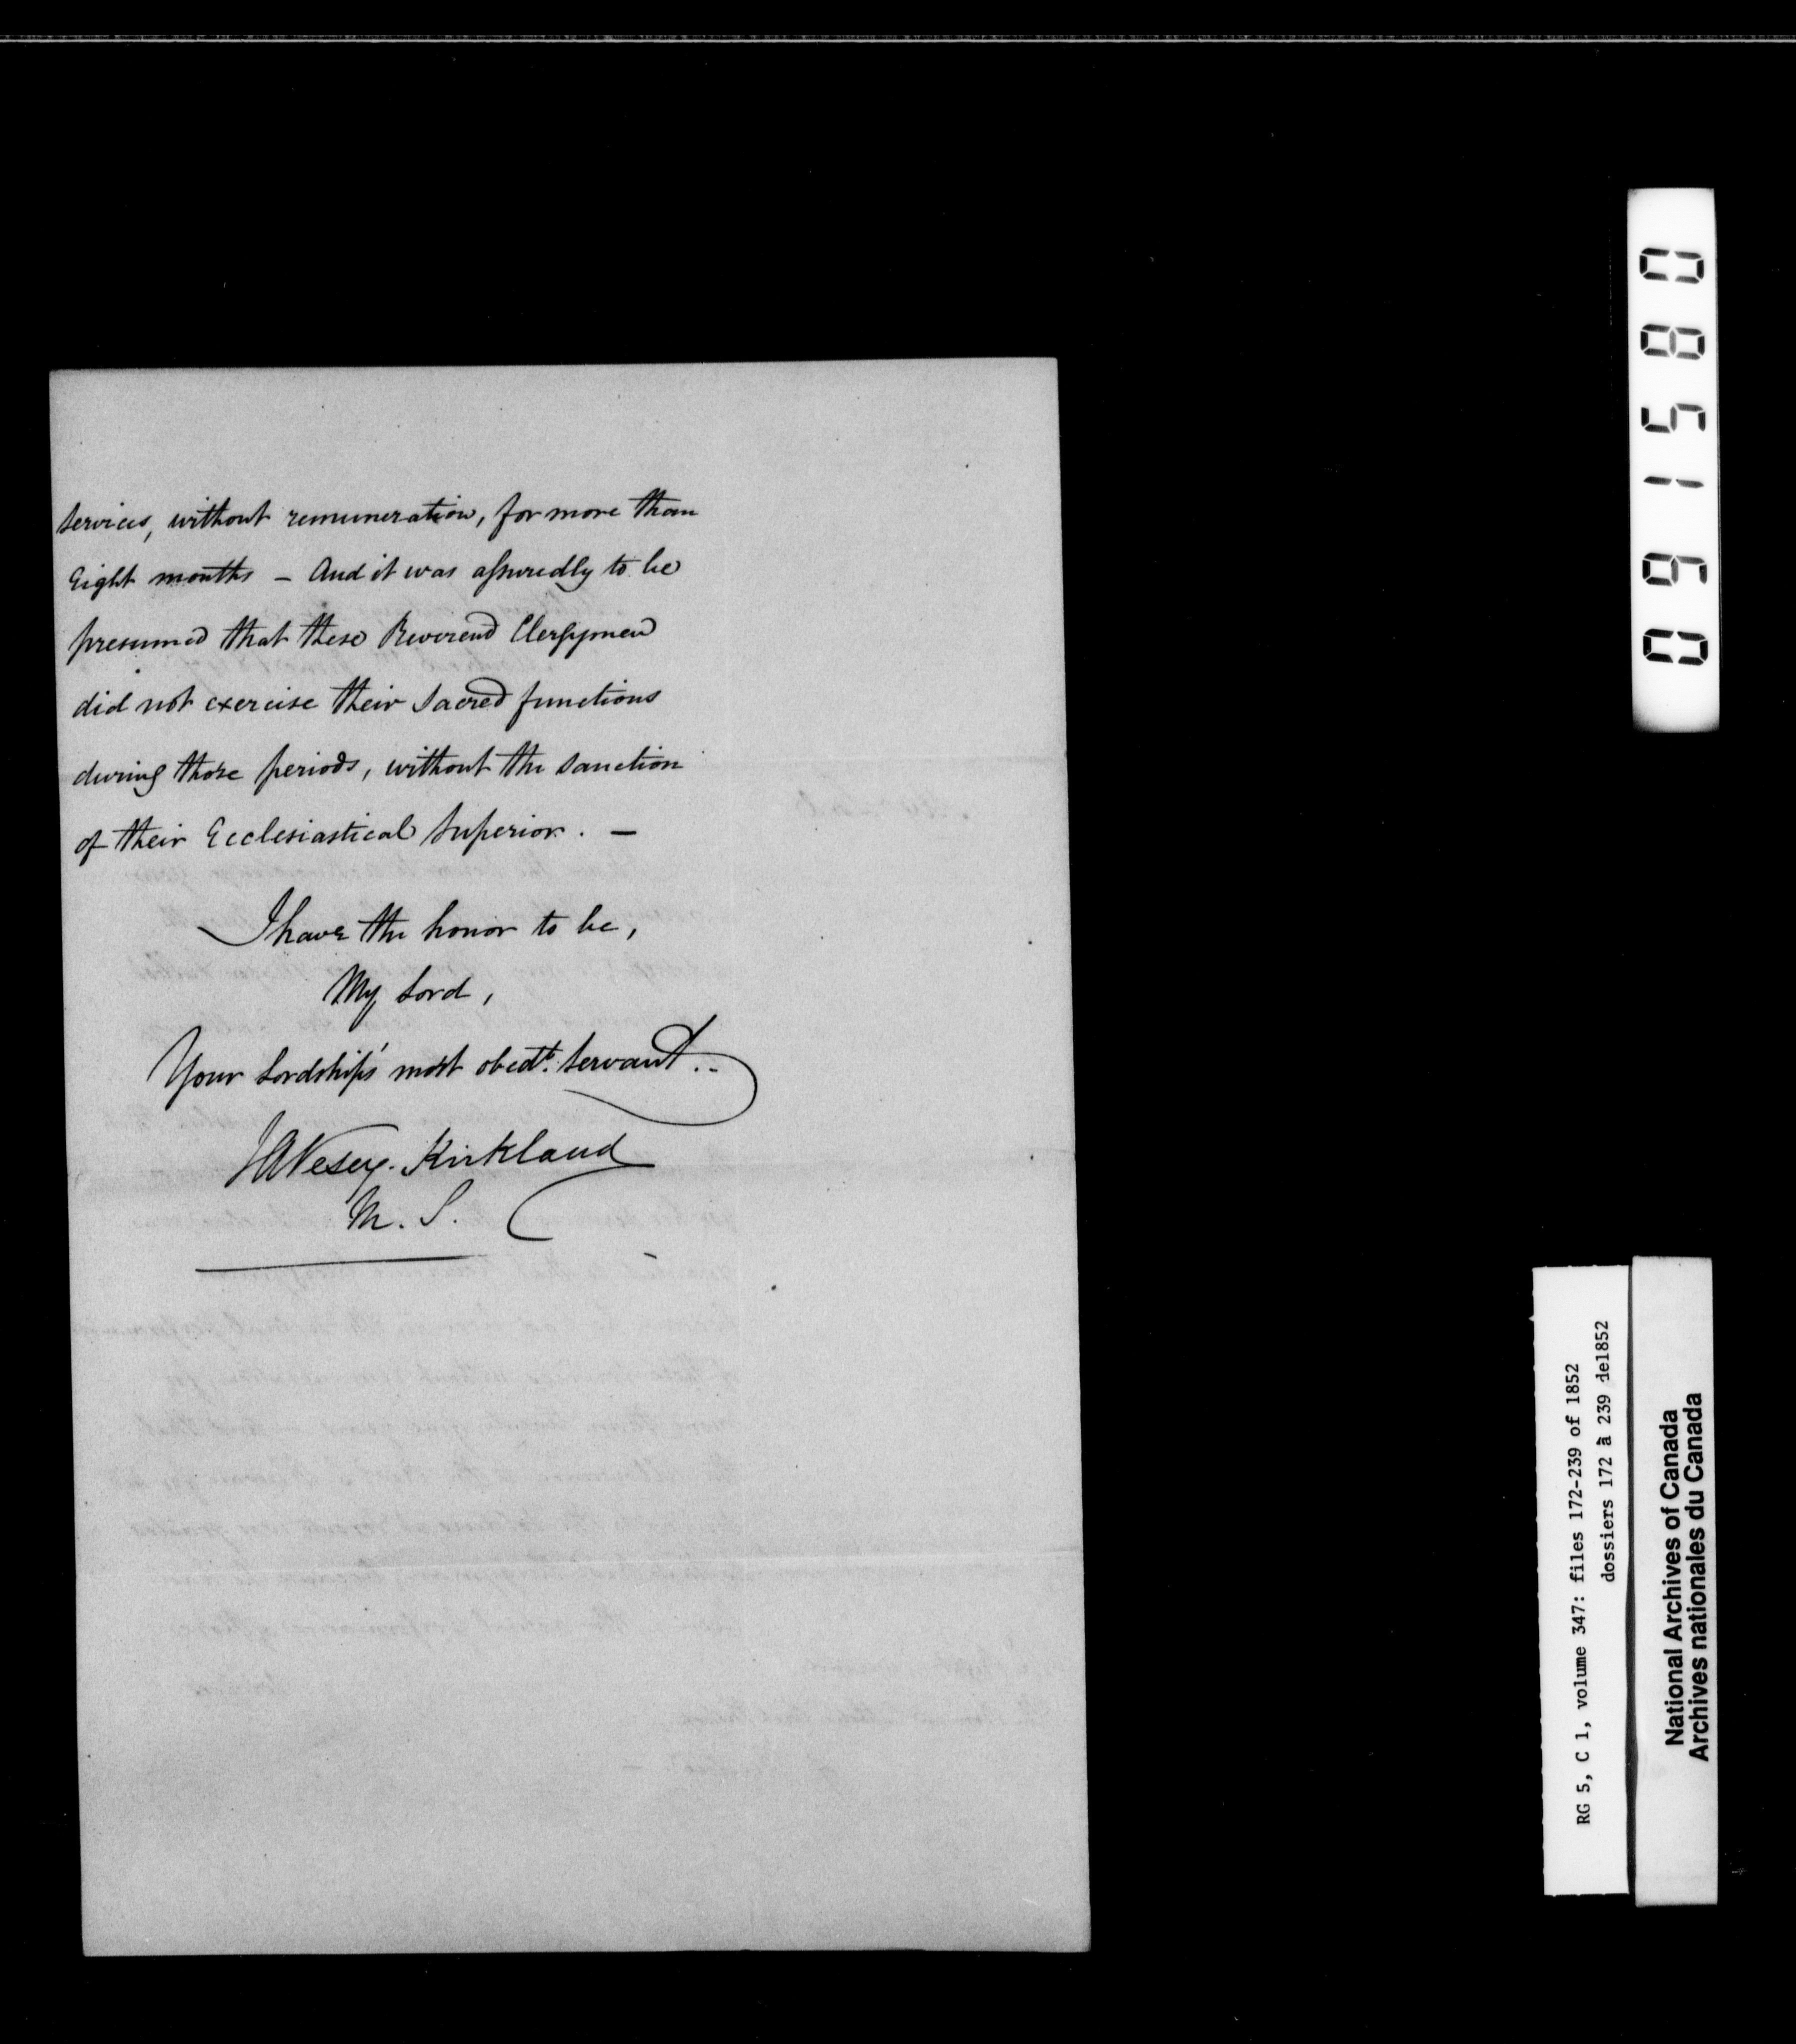 services, without remuneration, for more than
Eight months – And it was assuredly to be
presumed that these Reverend Clergymen
did not exercise their sacred functions
during those periods, without the sanction
of their Ecclesiastical Superior. –
I have the honor to be,
My Lord,
Your Lordship's most obedt. servant..
JAVesey. Kirkland
M. S.
091580
RG 5, C 1, volume 347: files 172-239 of 1852
dossiers 172 à 239 de1852
National Archives of Canada
Archives nationales du Canada